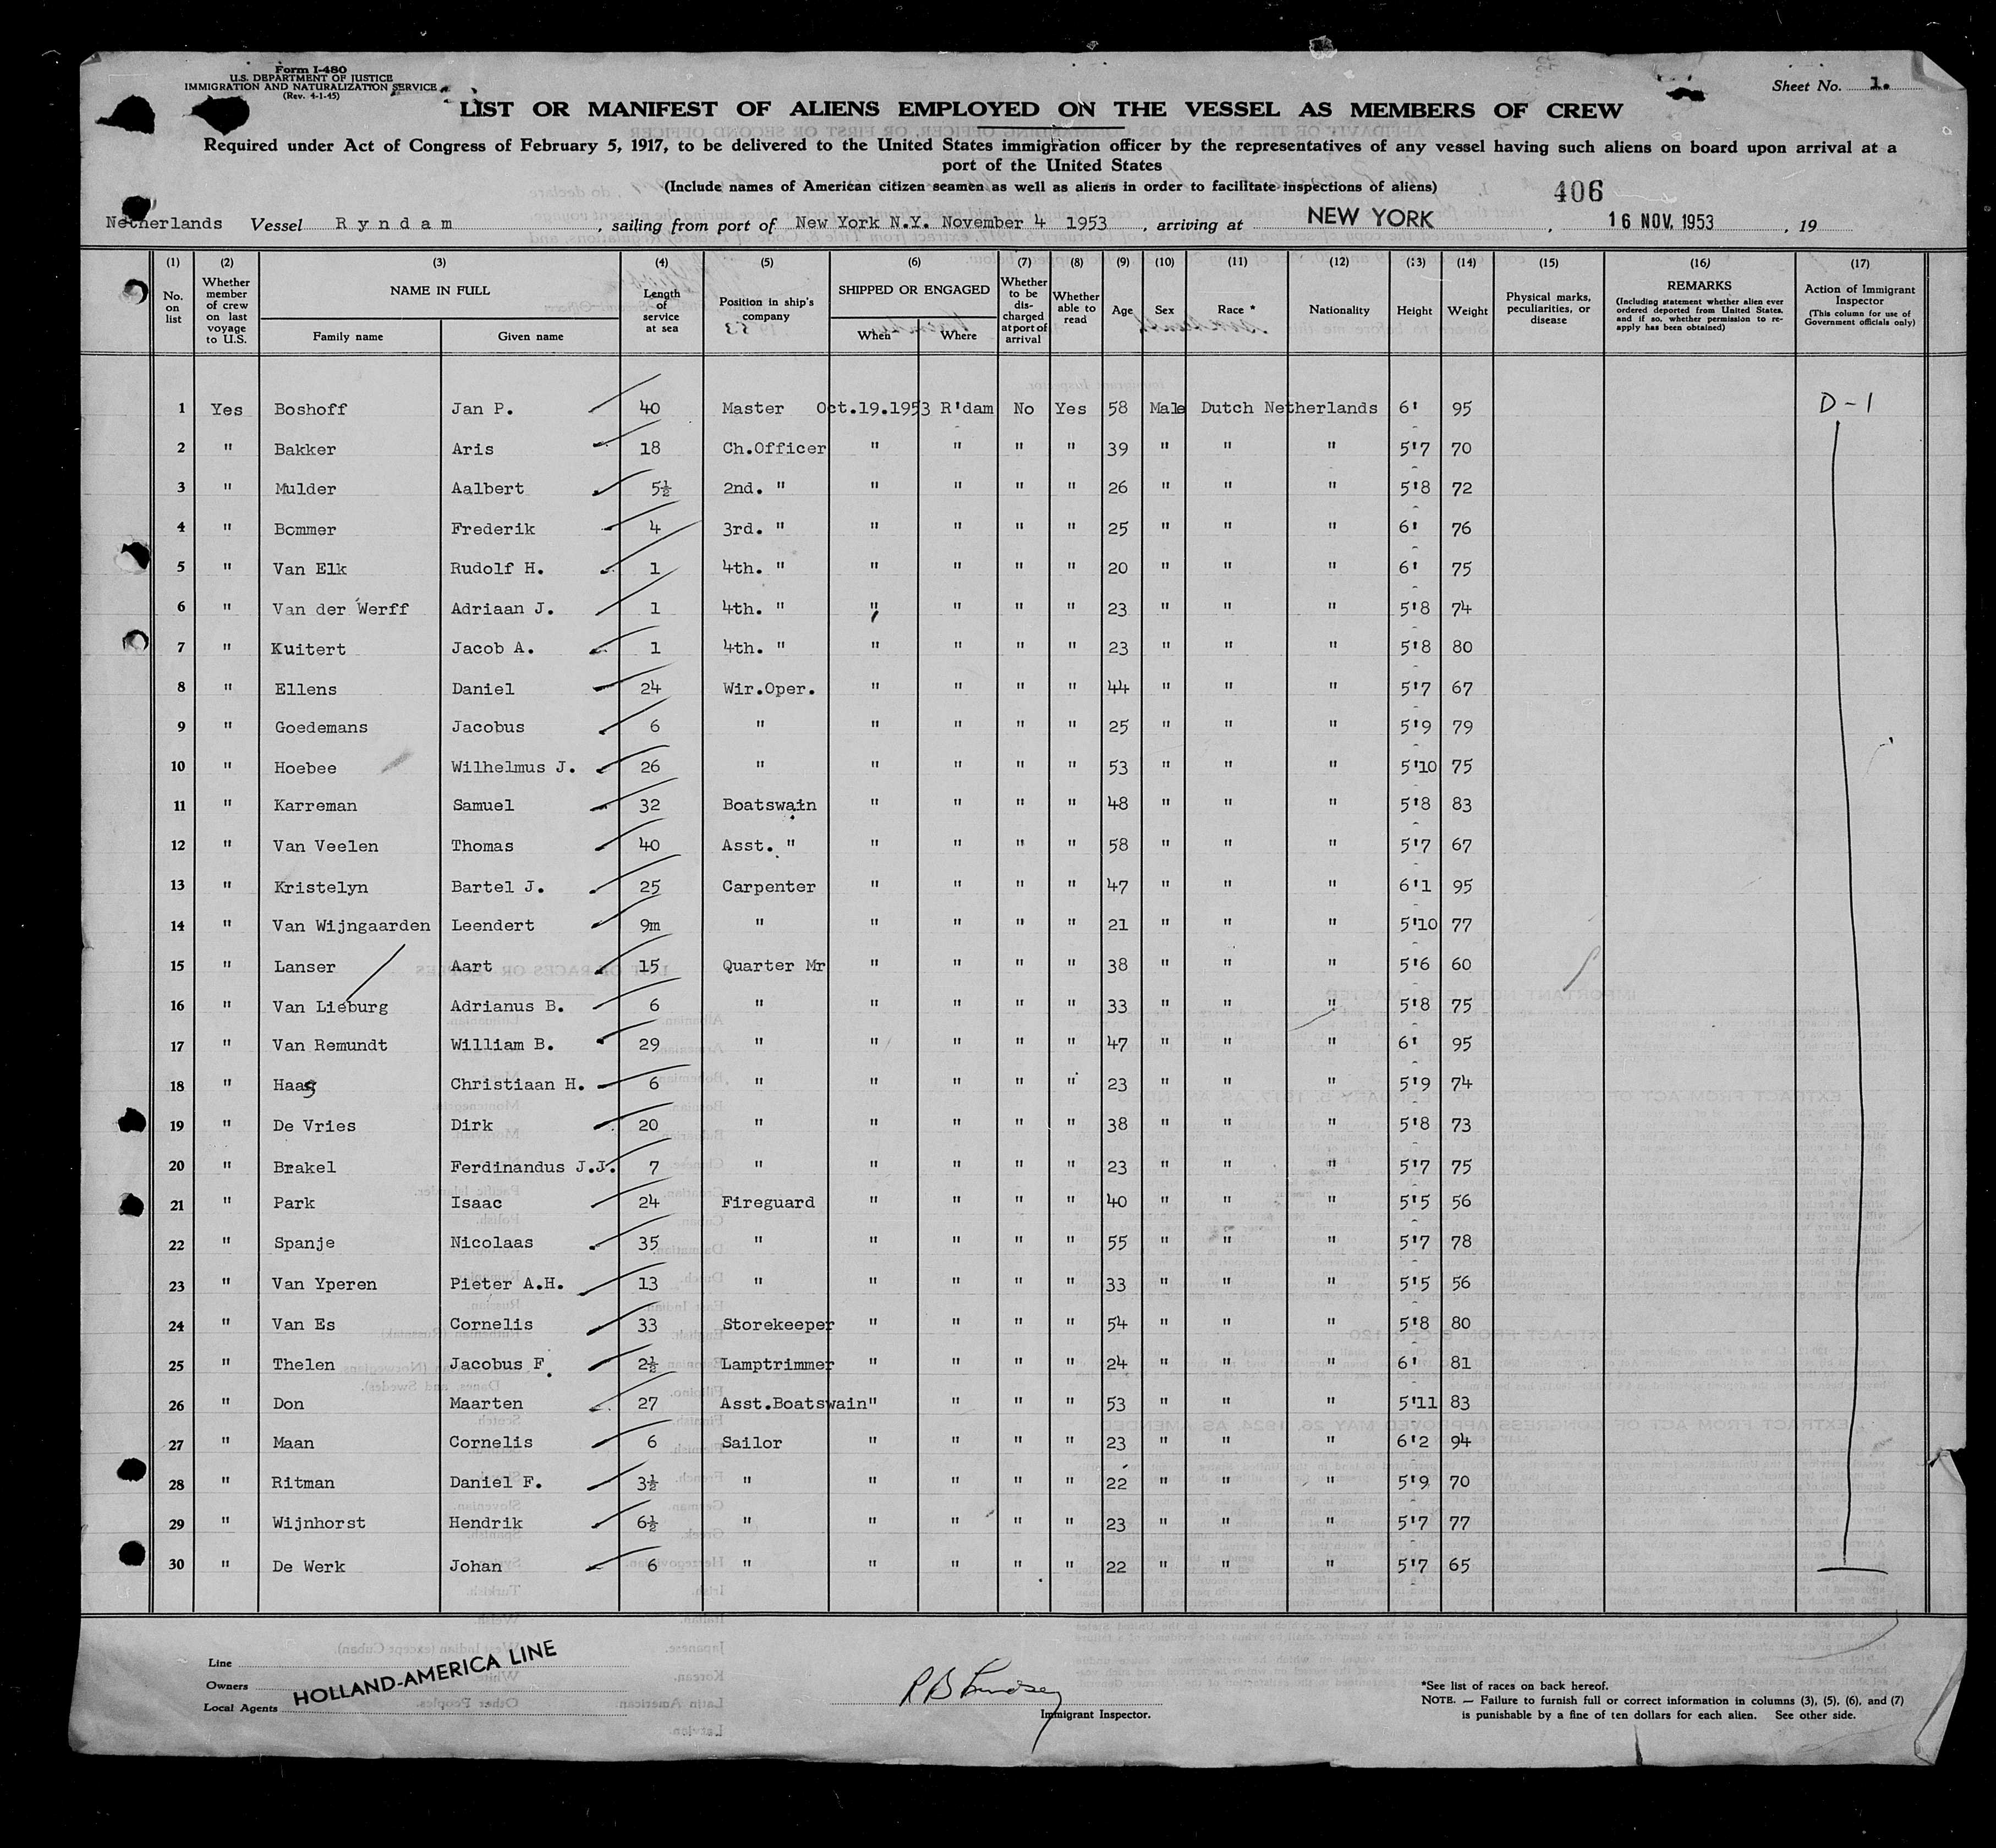 Form I-480
U.S. DEPARTMENT OF JUSTICE
IMMIGRATION AND NATURALIZATION SERVICE
(Rev. 4-1-45)
Sheet No. 1.
LIST OR MANIFEST OF ALIENS EMPLOYED ON THE VESSEL AS MEMBERS OF CREW
Required under Act of Congress of February 5, 1917, to be delivered to the United States immigration officer by the representatives of any vessel having such aliens on board upon arrival at a
port of the United States
(Include names of American citizen seamen as well as aliens in order to facilitate inspections of aliens)
406
Netherlands Vessel Ryndam, sailing from port of New York N.Y. November 4 1953, arriving at NEW YORK, 16 NOV. 1953, 19
(1) (2) (3) (4) (5) (6) (7) (8) (9) (10) (11) (12) (13) (14) (15) (16) (17)
No. on list
Whether member of crew on last voyage to U.S.
NAME IN FULL
Family name Given name
Length of service at sea
Position in ship's company
SHIPPED OR ENGAGED
When Where
Whether to be discharged at port of arrival
Whether able to read
Age
Sex
Race *
Nationality
Height
Weight
Physical marks, peculiarities, or disease
REMARKS
(Including statement whether alien ever ordered deported from United States, and if so, whether permission to reapply has been obtained)
Action of Immigrant Inspector
(This column for use of Government officials only)
1 Yes Boshoff Jan P. 40 Master Oct.19.1953 R'dam No Yes 58 Male Dutch Netherlands 6' 95 D-1
2 " Bakker Aris 18 Ch.Officer " " " " 39 " " " 5'7 70
3 " Mulder Aalbert 5½ 2nd. " " " " " 26 " " " 5'8 72
4 " Bommer Frederik 4 3rd. " " " " " 25 " " " 6' 76
5 " Van Elk Rudolf H. 1 4th. " " " " " 20 " " " 6' 75
6 " Van der Werff Adriaan J. 1 4th. " " " " " 23 " " " 5'8 74
7 " Kuitert Jacob A. 1 4th. " " " " " 23 " " " 5'8 80
8 " Ellens Daniel 24 Wir.Oper. " " " " 44 " " " 5'7 67
9 " Goedemans Jacobus 6 " " " " " 25 " " " 5'9 79
10 " Hoebee Wilhelmus J. 26 " " " " " 53 " " " 5'10 75
11 " Karreman Samuel 32 Boatswain " " " " 48 " " " 5'8 83
12 " Van Veelen Thomas 40 Asst. " " " " " 58 " " " 5'7 67
13 " Kristelyn Bartel J. 25 Carpenter " " " " 47 " " " 6'1 95
14 " Van Wijngaarden Leendert 9m " " " " " 21 " " " 5'10 77
15 " Lanser Aart 15 Quarter Mr " " " " 38 " " " 5'6 60
16 " Van Lieburg Adrianus B. 6 " " " " " 33 " " " 5'8 75
17 " Van Remundt William B. 29 " " " " " 47 " " " 6' 95
18 " Haas Christiaan H. 6 " " " " " 23 " " " 5'9 74
19 " De Vries Dirk 20 " " " " " 38 " " " 5'8 73
20 " Brakel Ferdinandus J.J. 7 " " " " " 23 " " " 5'7 75
21 " Park Isaac 24 Fireguard " " " " 40 " " " 5'5 56
22 " Spanje Nicolaas 35 " " " " " 55 " " " 5'7 78
23 " Van Yperen Pieter A.H. 13 " " " " " 33 " " " 5'5 56
24 " Van Es Cornelis 33 Storekeeper " " " " 54 " " " 5'8 80
25 " Thelen Jacobus F. 2½ Lamptrimmer " " " " 24 " " " 6' 81
26 " Don Maarten 27 Asst.Boatswain " " " " 53 " " " 5'11 83
27 " Maan Cornelis 6 Sailor " " " " 23 " " " 6'2 94
28 " Ritman Daniel F. 3½ " " " " " 22 " " " 5'9 70
29 " Wijnhorst Hendrik 6½ " " " " " 23 " " " 5'7 77
30 " De Werk Johan 6 " " " " " 22 " " " 5'7 65
Line
Owners
Local Agents
HOLLAND-AMERICA LINE
R B Lindsey
Immigrant Inspector.
*See list of races on back hereof.
NOTE. — Failure to furnish full or correct information in columns (3), (5), (6), and (7)
is punishable by a fine of ten dollars for each alien. See other side.